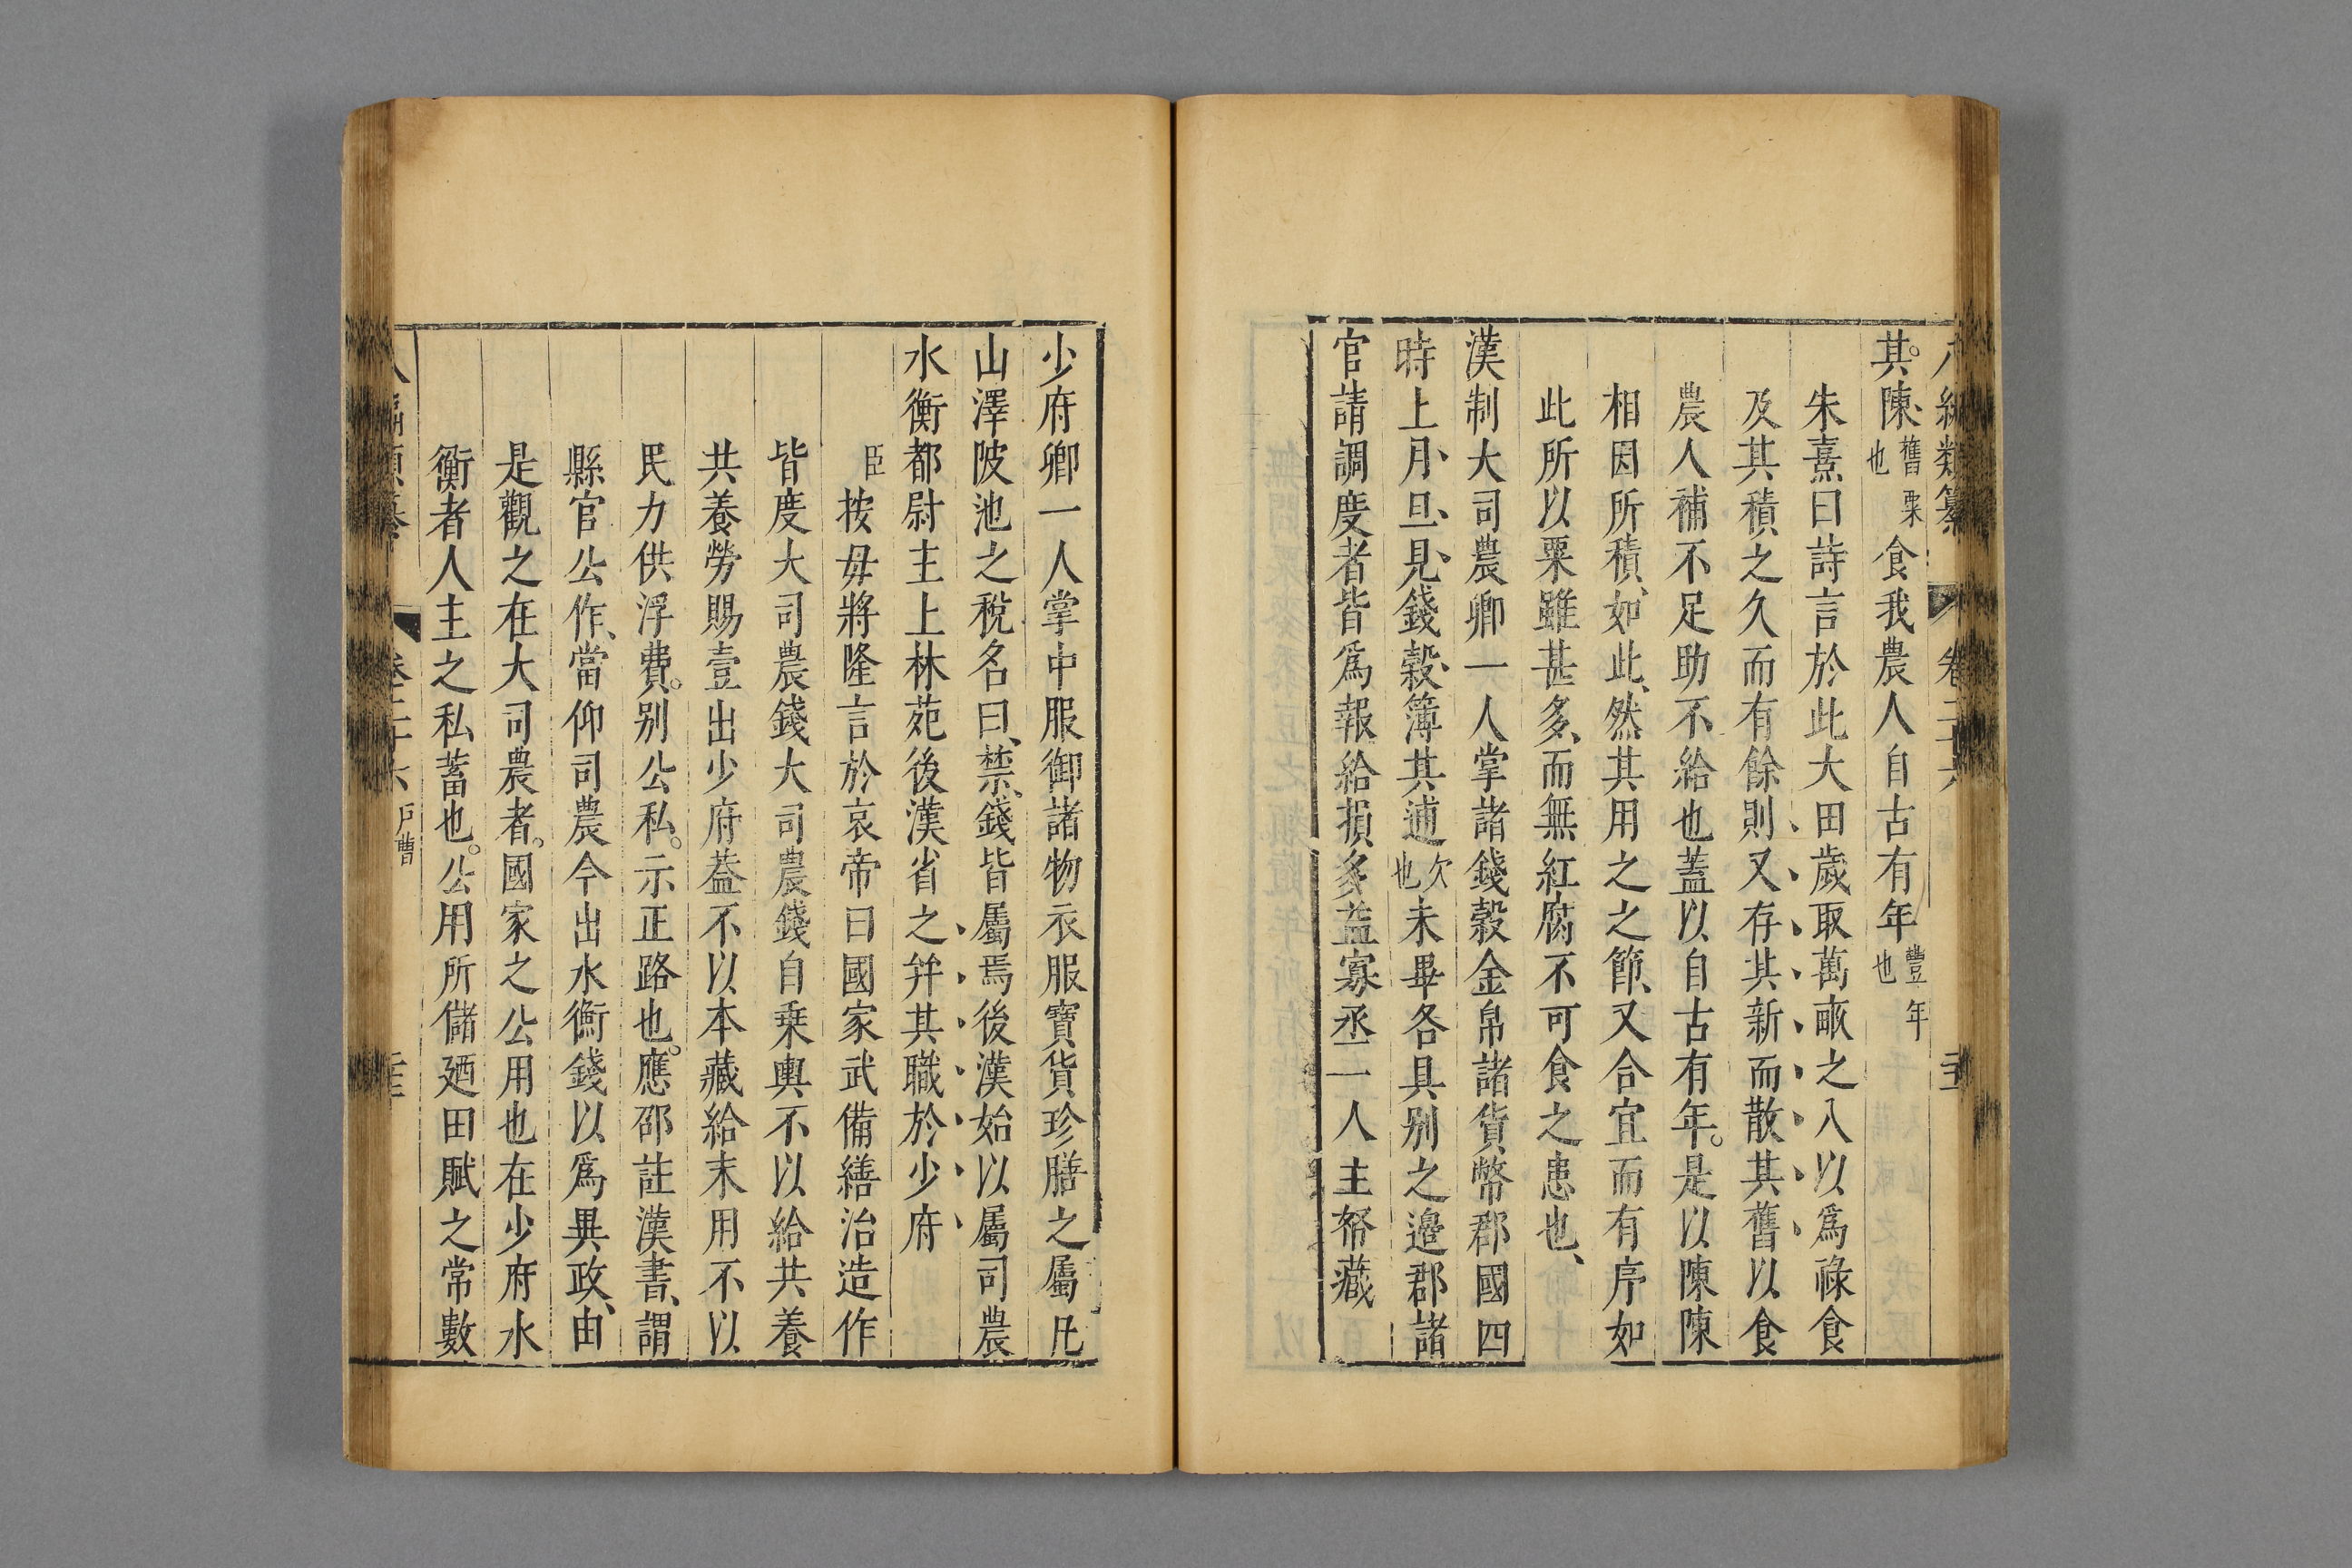 其陳舊粟也食我農人自古有年豐年也
朱熹曰詩言於此大田歲取萬畝之入以爲祿食
及其積之久而有餘則又存其新而散其舊以食
農人補不足助不給也蓋以自古有年是以陳陳
相因所積如此然其用之之節又合宜而有序如
此所以粟雖甚多而無紅腐不可食之患也
漢制大司農卿一人掌諸錢穀金帛諸貨幣郡國四
時上月旦見錢穀簿其逋欠也未畢各具別之邊郡諸
官請調度者皆爲報給損多益寡丞一人主帑藏
少府卿一人掌中服御諸物衣服寶貨珍膳之屬凡
山澤陂池之稅名曰禁錢皆屬焉後漢始以屬司農
水衡都尉主上林苑後漢省之并其職於少府
臣按毋將隆言於哀帝曰國家武備繕治造作
皆度大司農錢大司農錢自乘輿不以給共養
共養勞賜壹出少府葢不以本藏給末用不以
民力供浮費別公私示正路也應邵註漢書謂
縣官公作當仰司農今出水衡錢以爲異政由
是觀之在大司農者國家之公用也在少府水
衡者人主之私蓄也公用所儲廼田賦之常數
卷二十六 戶曹